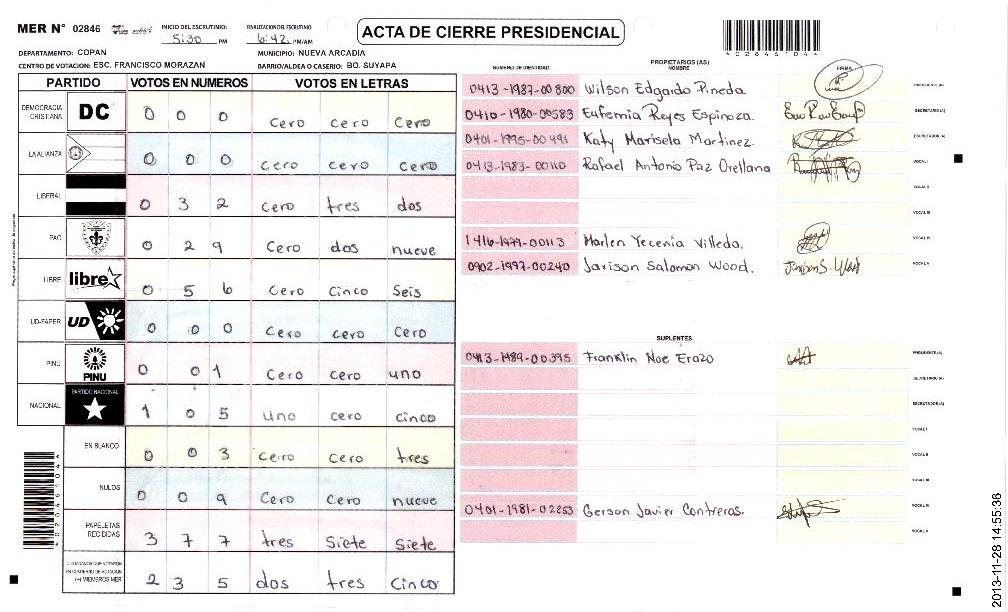 MER N° 02846
INICIO DEL ESCRUTINIO
5:30 PM
FINALIZACION DEL ESCRUTINIO
6:42 PM/AM
ACTA DE CIERRE PRESIDENCIAL
DEPARTAMENTO: COPAN
MUNICIPIO: NUEVA ARCADIA
CENTRO DE VOTACION: ESC. FRANCISCO MORAZAN
BARRIO/ALDEA O CASERIO: BO. SUYAPA
PARTIDO VOTOS EN NUMEROS VOTOS EN LETRAS
DEMOCRACIA CRISTIANA DC 0 0 0 Cero cero Cero
LA ALIANZA 0 0 0 Cero cero Cero
LIBERAL 0 3 2 Cero tres dos
PAC 0 2 9 Cero dos nueve
LIBRE libre 0 5 6 Cero Cinco Seis
UD-FAPER UD 0 0 0 Cero cero Cero
PINU PINU 0 0 1 Cero Cero uno
NACIONAL PARTIDO NACIONAL 1 0 5 Uno cero cinco
EN BLANCO 0 0 3 Cero Cero tres
NULOS 0 0 9 Cero Cero nueve
PAPELETAS RECIBIDAS 3 7 7 tres Siete Siete
CIUDADANOS QUE VOTARON EN CENTRO DE VOTACION (+) MIEMBROS MER 2 3 5 dos tres Cinco
PROPIETARIOS (AS)
NUMERO DE IDENTIDAD NOMBRE FIRMA
0413-1987-00800 Wilson Edgardo Pineda PRESIDENTE (A)
0410-1980-00583 Eufemia Reyes Espinoza. SECRETARIO (A)
0401-1995-00491 Katy Marisela Martinez. ESCRUTADOR (A)
0413-1983-00110 Rafael Antonio Paz Orellana VOCAL I
VOCAL II
VOCAL III
1416-1979-00113 Marlen Yecenia Villeda. VOCAL IV
0902-1997-00240 Jarison Salomon Wood. VOCAL V
SUPLENTES
0413-1989-00395 Franklin Noe Erazo PRESIDENTE (A)
SECRETARIO (A)
ESCRUTADOR (A)
VOCAL I
VOCAL II
VOCAL III
0401-1981-02853 Gerson Javier Contreras. VOCAL IV
VOCAL V
2013-11-28 14:55:36